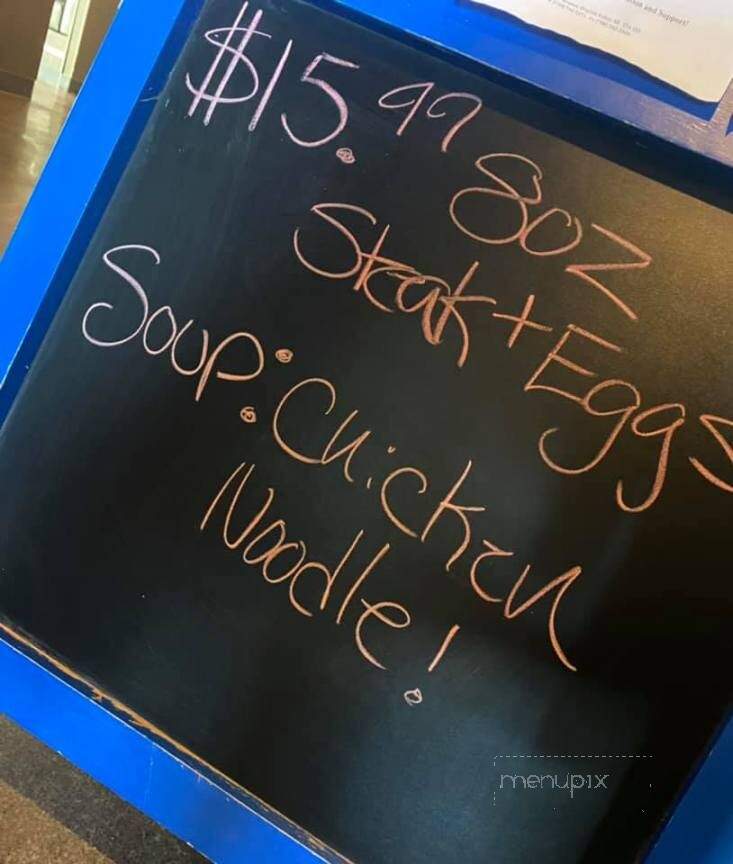 $15.99 8oz
Steak + Eggs
Soup: Chicken
Noodle!
menupix